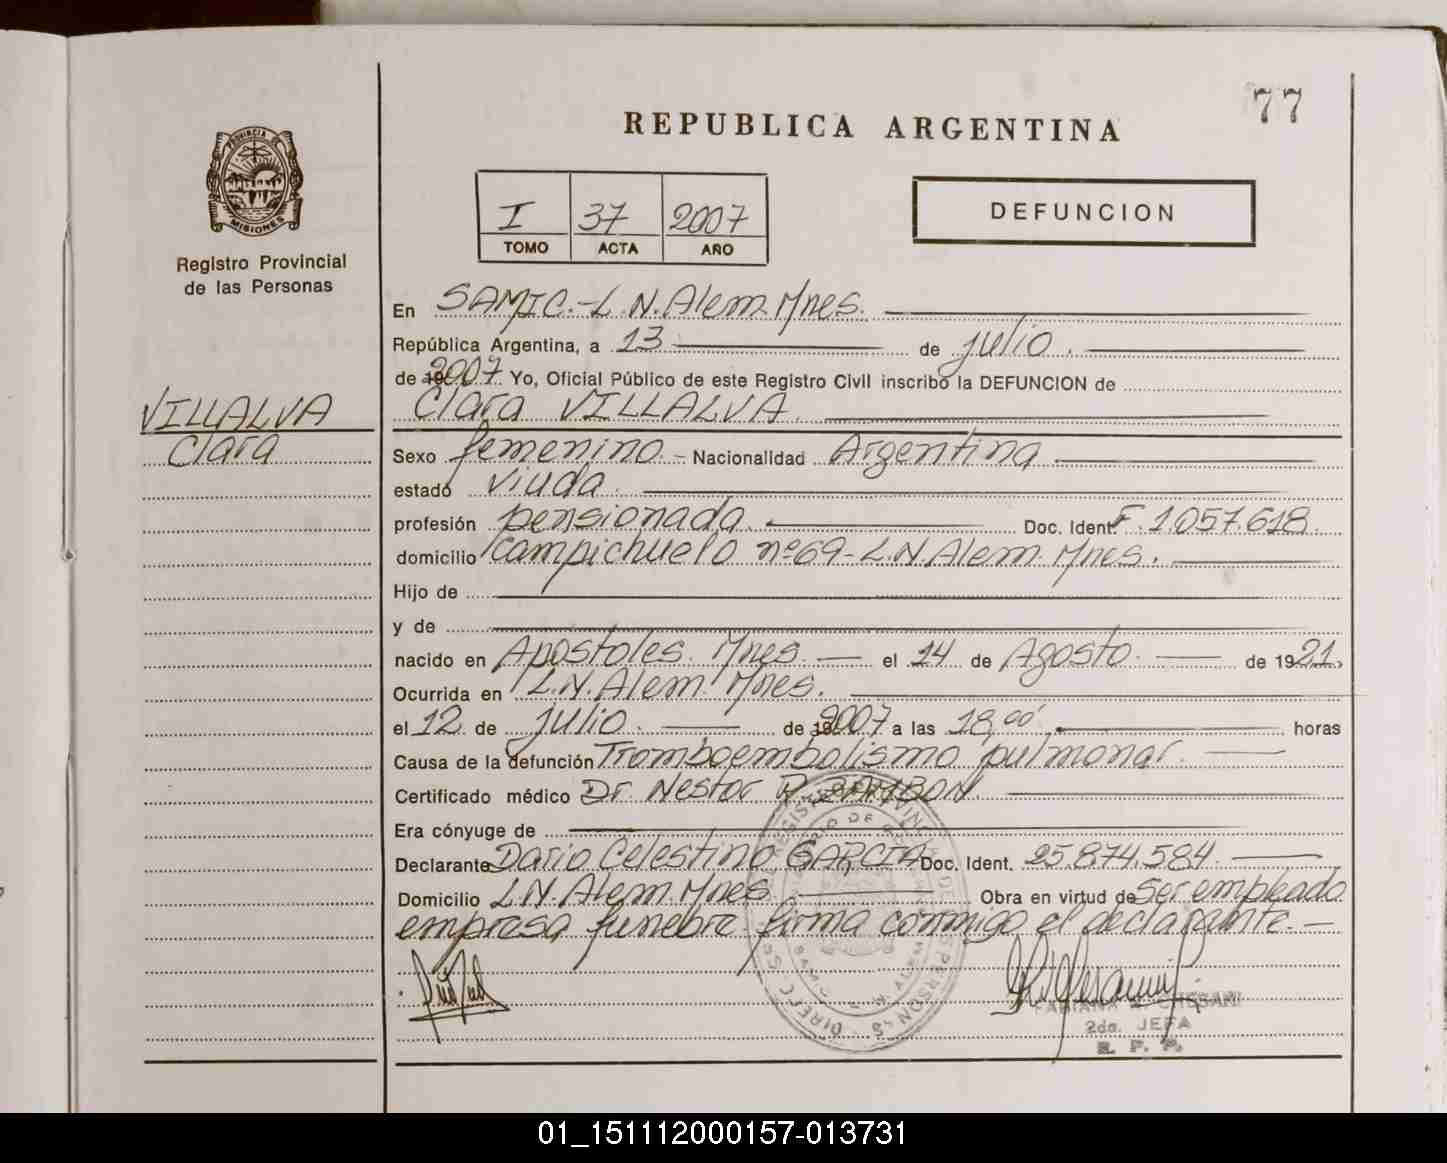 77
REPUBLICA ARGENTINA
PROVINCIA DE
MISIONES
Registro Provincial
de las Personas
I 37 2007
TOMO ACTA AÑO
DEFUNCION
En SAMIC.-L.N.Alem.Mnes.
República Argentina, a 13 de julio.
de 2007. Yo, Oficial Público de este Registro Civil inscribo la DEFUNCION de
Clara VILLALVA.
VILLALVA
Clara
Sexo femenino.- Nacionalidad Argentina
estado viuda.
profesión pensionada. Doc. Ident. F.1.057.618.
domicilio Campichuelo nº69-L.N.Alem.Mnes.
Hijo de
y de
nacido en Apóstoles. Mnes. el 14 de Agosto. de 1921.
Ocurrida en L.N.Alem. Mnes.
el 12. de julio. de 2007 a las 18,00 horas
Causa de la defunción Tromboembolismo pulmonar.
Certificado médico Dr. Nestor R. ZAMBON.
Era cónyuge de
Declarante Dario Celestino GARCIA Doc. Ident. 25.874.584.
Domicilio L.N.Alem Mnes. Obra en virtud de ser empleado
empresa funebre firma conmigo el declarante.-
2da. JEFA
R. P. P.
01_151112000157-013731